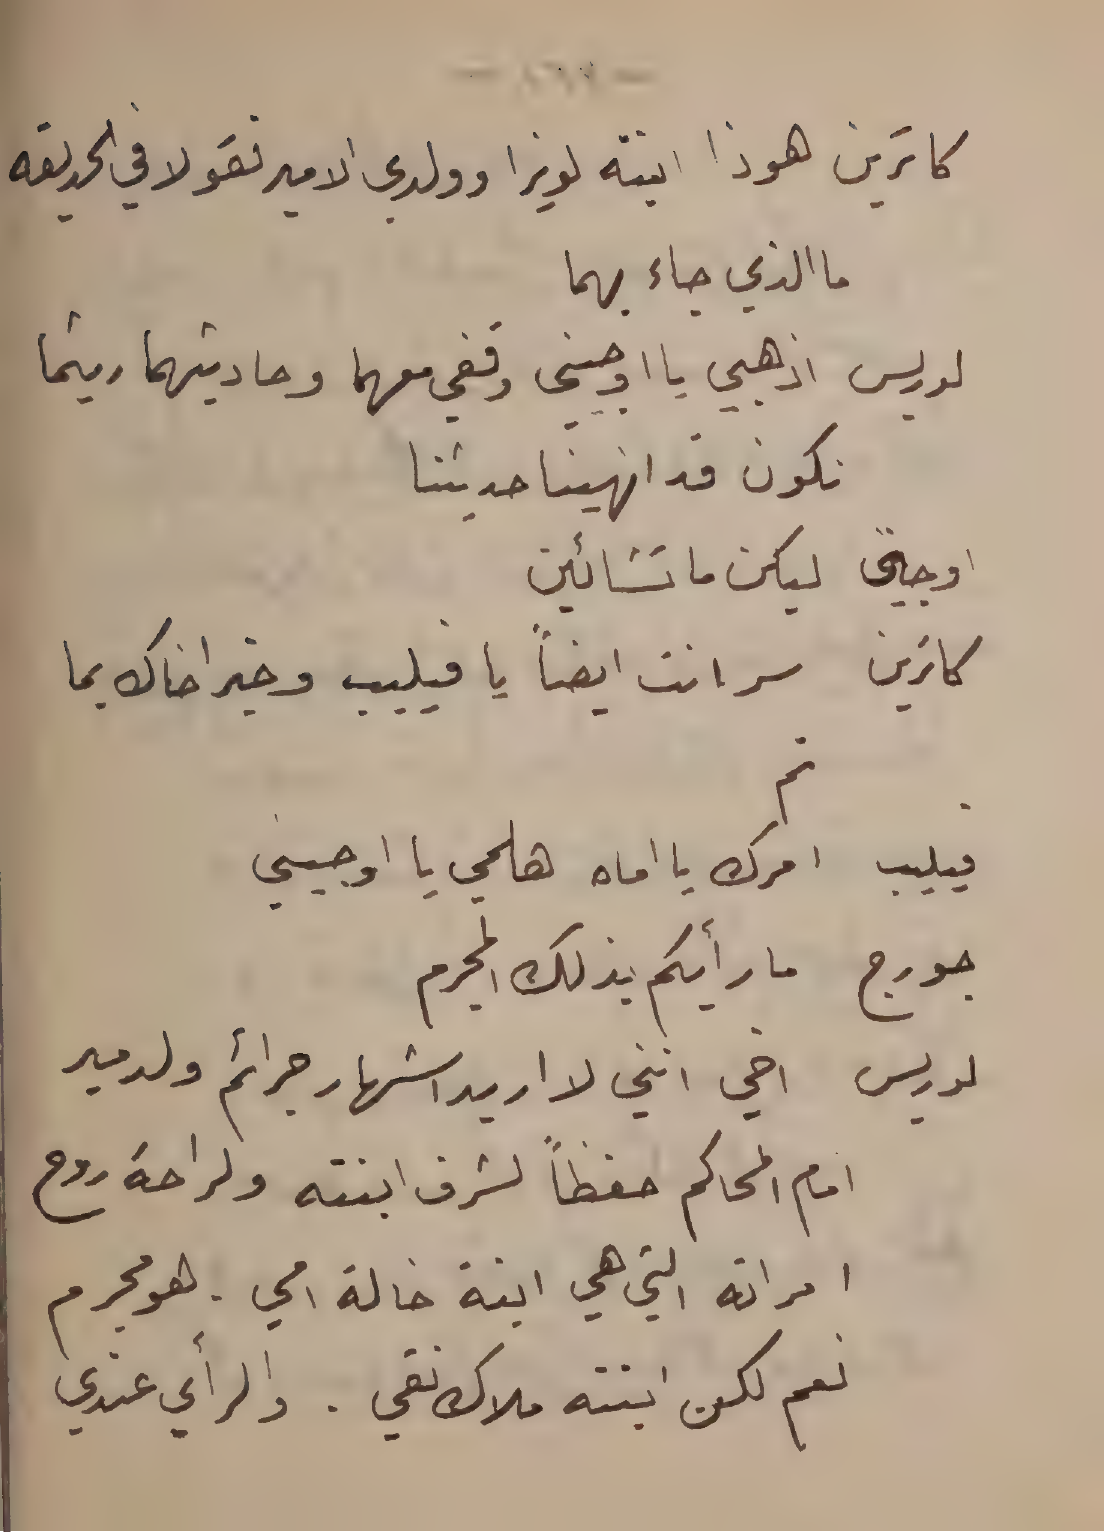 كاترين هوذا ابنته لويزا وولدي الامير نقولا في الحديقه
ما الذي جاء بهما
لوريس اذهبي يا اوجيني وقفي معهما وحاديثهما ريثما
نكون قد انهينا حديثنا
اوجيني ليكن ما تشائين
كاترين سر انت ايضاً يا فيليب وخبر اخاك بما
تم
فيليب امرك يا اماه هلمي يا اوجيني
جورج ما رأيكم بذلك المجرم
لوريس اخي انني لا اريد اشهار جرائم ولدمير
امام المحاكم حفظاً لشرف ابنته ولراحة روح
امراته التي هي ابنة خالة امي . هو مجرم
نعم لكن ابنته ملاك نقي . والرأي عندي